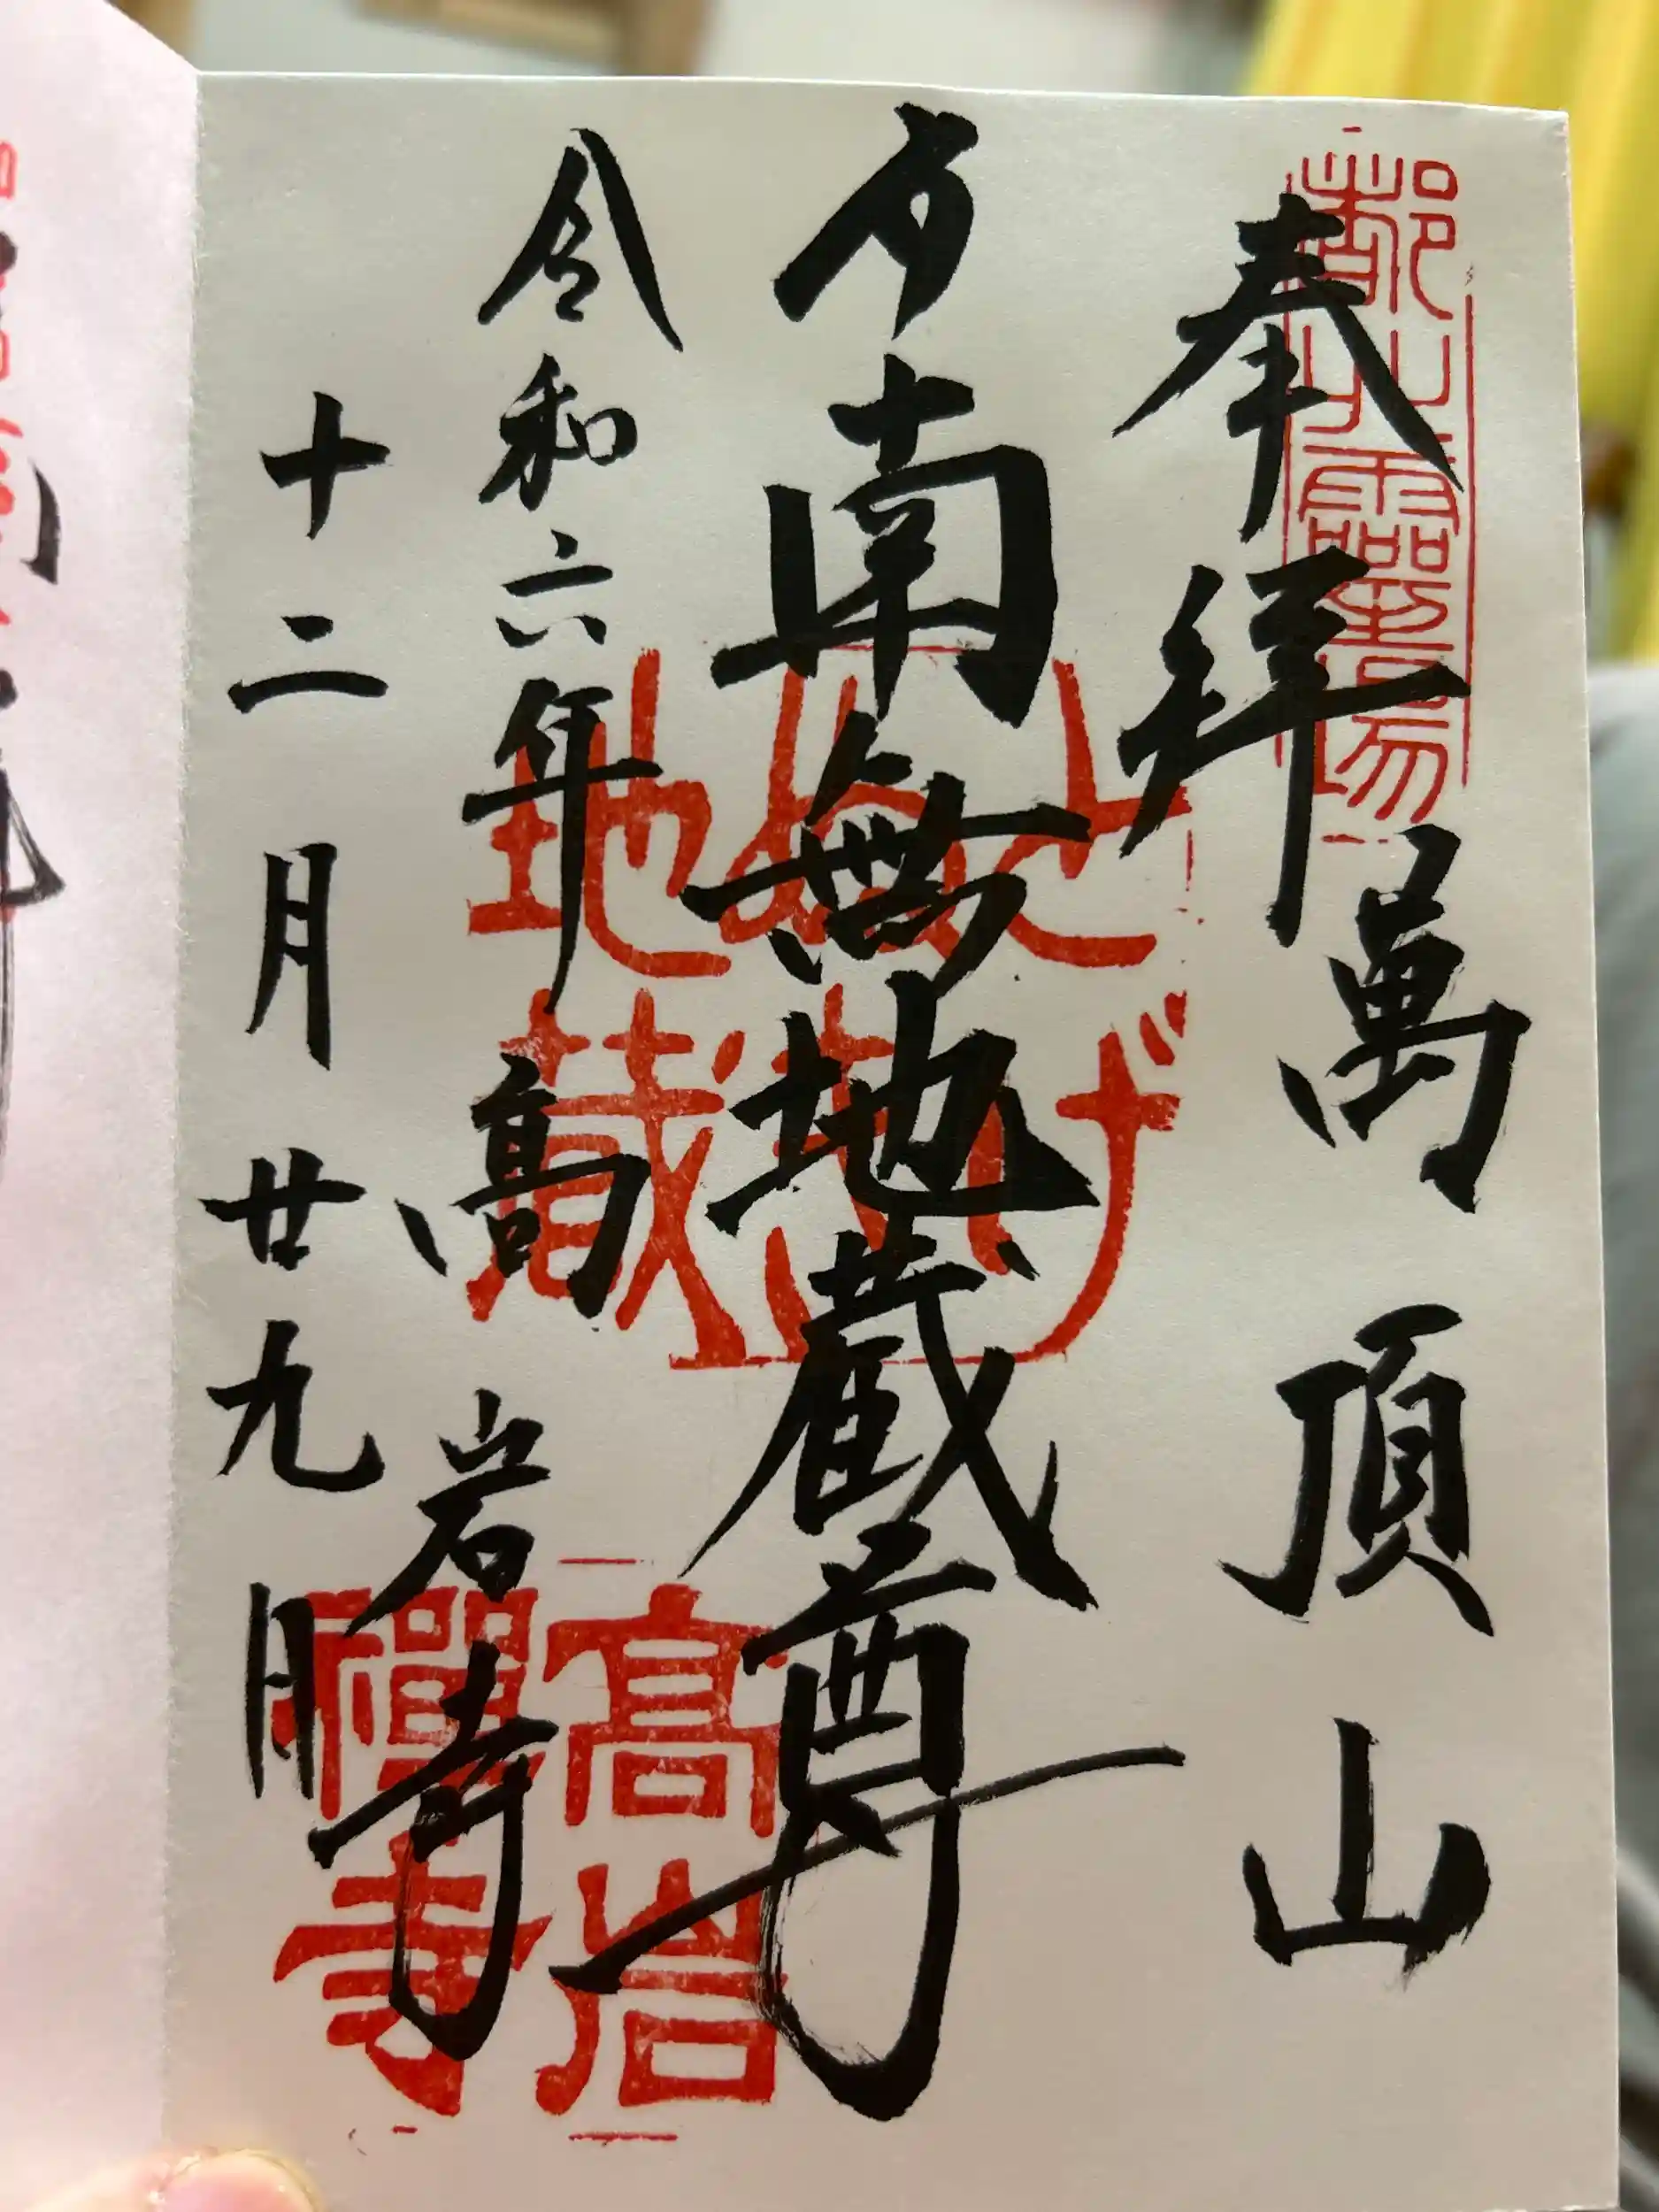 奉拜
萬頂山
南無地蔵尊
とげ
ぬき
地蔵
令和六年
高岩寺
高岩
禪寺
十二月廿九日